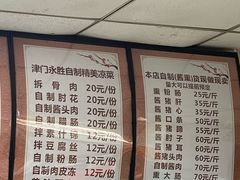 津门永胜自制精美凉菜
拆骨肉 20元/份
自制肘花 20元/份
自制酱头肉 20元/份
自制酱肉 20元/份
拌素什锦 12元/份
拌豆腐丝 12元/份
自制粉肠 12元/份
自制肉皮冻 12元/份
本店自制(酱熏)货现做现卖
量大可以提前预定
熏粉肠 25元/斤
酱猪肝 35元/斤
酱猪心 55元/斤
酱猪蹄 55元/斤
酱肘子 60元/斤
酱猪耳 60元/斤
酱猪头肉 60元/斤
自制酱肉 70元/斤
熏大肠 70元/斤